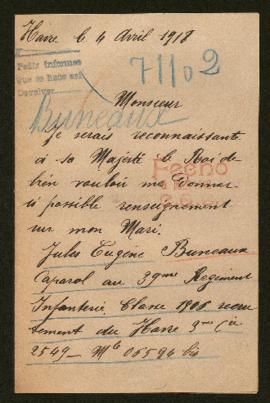 Havre le 4 Avril 1918
Pedir informes
que se hace así
Devolver
71102
Monsieur
Buneaux
Je serais reconnaissante
à sa Majesté le Roi de
bien vouloir me donner
si possible renseignement
sur mon Mari.
Jules Eugène Buneaux
Caporal au 39me Regiment
Infanterie Classe 1906 recru
tement du Havre 9me Cie
2549 — Mle 06594 bis